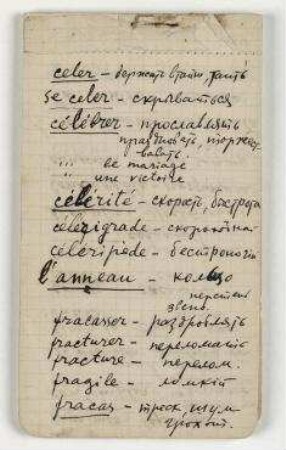 celer – держать втайне, таить
se celer – скрываться
célébrer – прославлять
праздновать, торжест-
вовать.
""" le mariage
"" une victoire
célérité – скорость, быстрота
célérigrade – скороход
céléripède – быстроногий
l'anneau – кольцо
перстень
звено.
fracasser – раздроблять
fracturer – переломать
fracture – перелом.
fragile – ломкий
fracas – треск, шум
грохот.